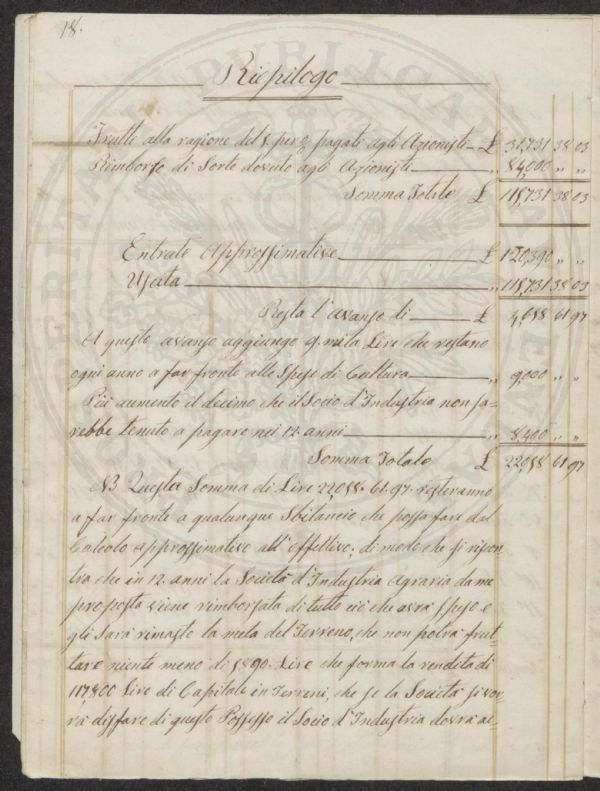 18.
Riepilogo
Frutti alla ragione del 5 per % pagati agli Azionisti — £ 31,731 38 03
Rimborso di Sorte dovute agli Azionisti — „ 84,000 „ „
Somma Totale £ 115,731 38 03
Entrate Approssimative — £ 120,390 „ „
Uscita — „ 115,731 38 03
Resta l'avanzo di — £ 4,658 61 97
A questo avanzo aggiungo 9. mila Lire che restano
ogni anno a far fronte alle Spese di Cultura — „ 9,000 „ „
Più aumento il decimo che il Socio d'Industria non sa=
rebbe tenuto a pagare nei 12 anni — „ 8,400 „ „
Somma Totale £ 22,058 61 97
NB Questa Somma di Lire 22,058. 61. 97. resteranno
a far fronte a qualunque Sbilancio che possa fare dal
Calcolo approssimativo all'effettivo; di modo che si riscon
tra che in 12. anni la Società d'Industria Agraria da me
proposta viene rimborsata di tutto ciò che avrà speso e
gli Sarà rimasto la metà del Terreno, che non potrà frut=
tare niente meno di 5890. Lire che forma la rendita di
117,800 Lire di Capitale in Terreni, che se la Società si vor=
rà disfare di questo Possesso il Socio d'Industria dovrà ac=